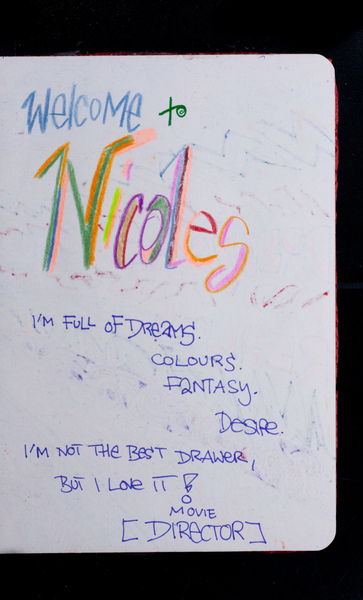 Welcome to
Nicoles
I'M FULL OF DREAMS.
COLOURS.
FANTASY.
DESIRE.
I'M NOT THE BEST DRAWER,
BUT I LOVE IT!
MOVIE
[DIRECTOR]